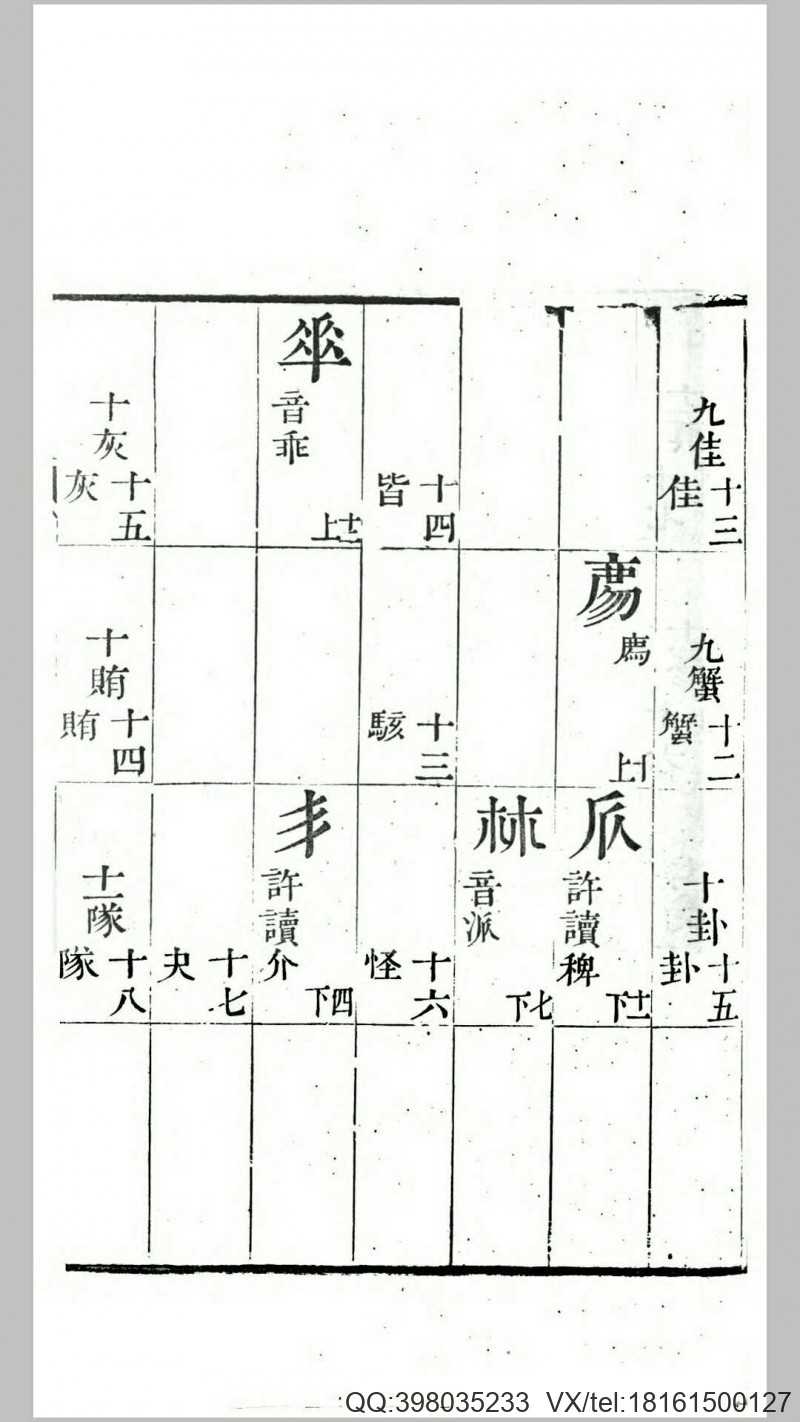 九佳
十三
佳
九蟹
十二
蟹
十卦
十五
卦
廌
十上
𠂢
許讀稗
十一下
𣏟
音派
七下
十四
皆
十三
駭
十六
怪
音乖
十二上
丯
許讀介
四下
十七
夬
十灰
十五
灰
十賄
十四
賄
十一隊
十八
隊
QQ:398035233 VX/tel:18161500127